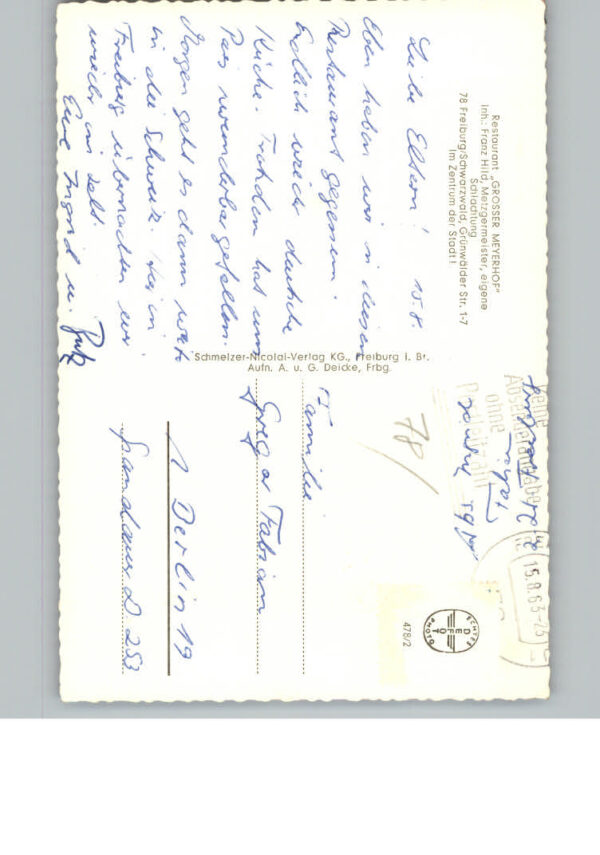 Restaurant „GROSSER MEYERHOF"
Inh.: Franz Hild, Metzgermeister, eigene
Schlachtung
78 Freiburg/Schwarzwald, Grünwälder Str. 1-7
Im Zentrum der Stadt!
Liebe Eltern! 15.8.
Eben haben wir in diesem
Restaurant gegessen.
Endlich wieder deutsche
Küche. Trotzdem hat uns
Paris wunderbar gefallen.
Morgen geht es dann weiter
in die Schweiz. Hier in
Freiburg übernachten wir
wieder im Zelt.
Eure Ingrid u.
Schmelzer-Nicolai-Verlag KG., Freiburg i. Br.
Aufn. A. u. G. Deicke, Frbg.
Keine
Absenderangabe
ohne
Postleitzahl
15.8.63-23
ECHTES
DEFOT
PHOTO
478/2
78/
Familie
Gregor Fabian
1 Berlin 19
Spandauer D. 253